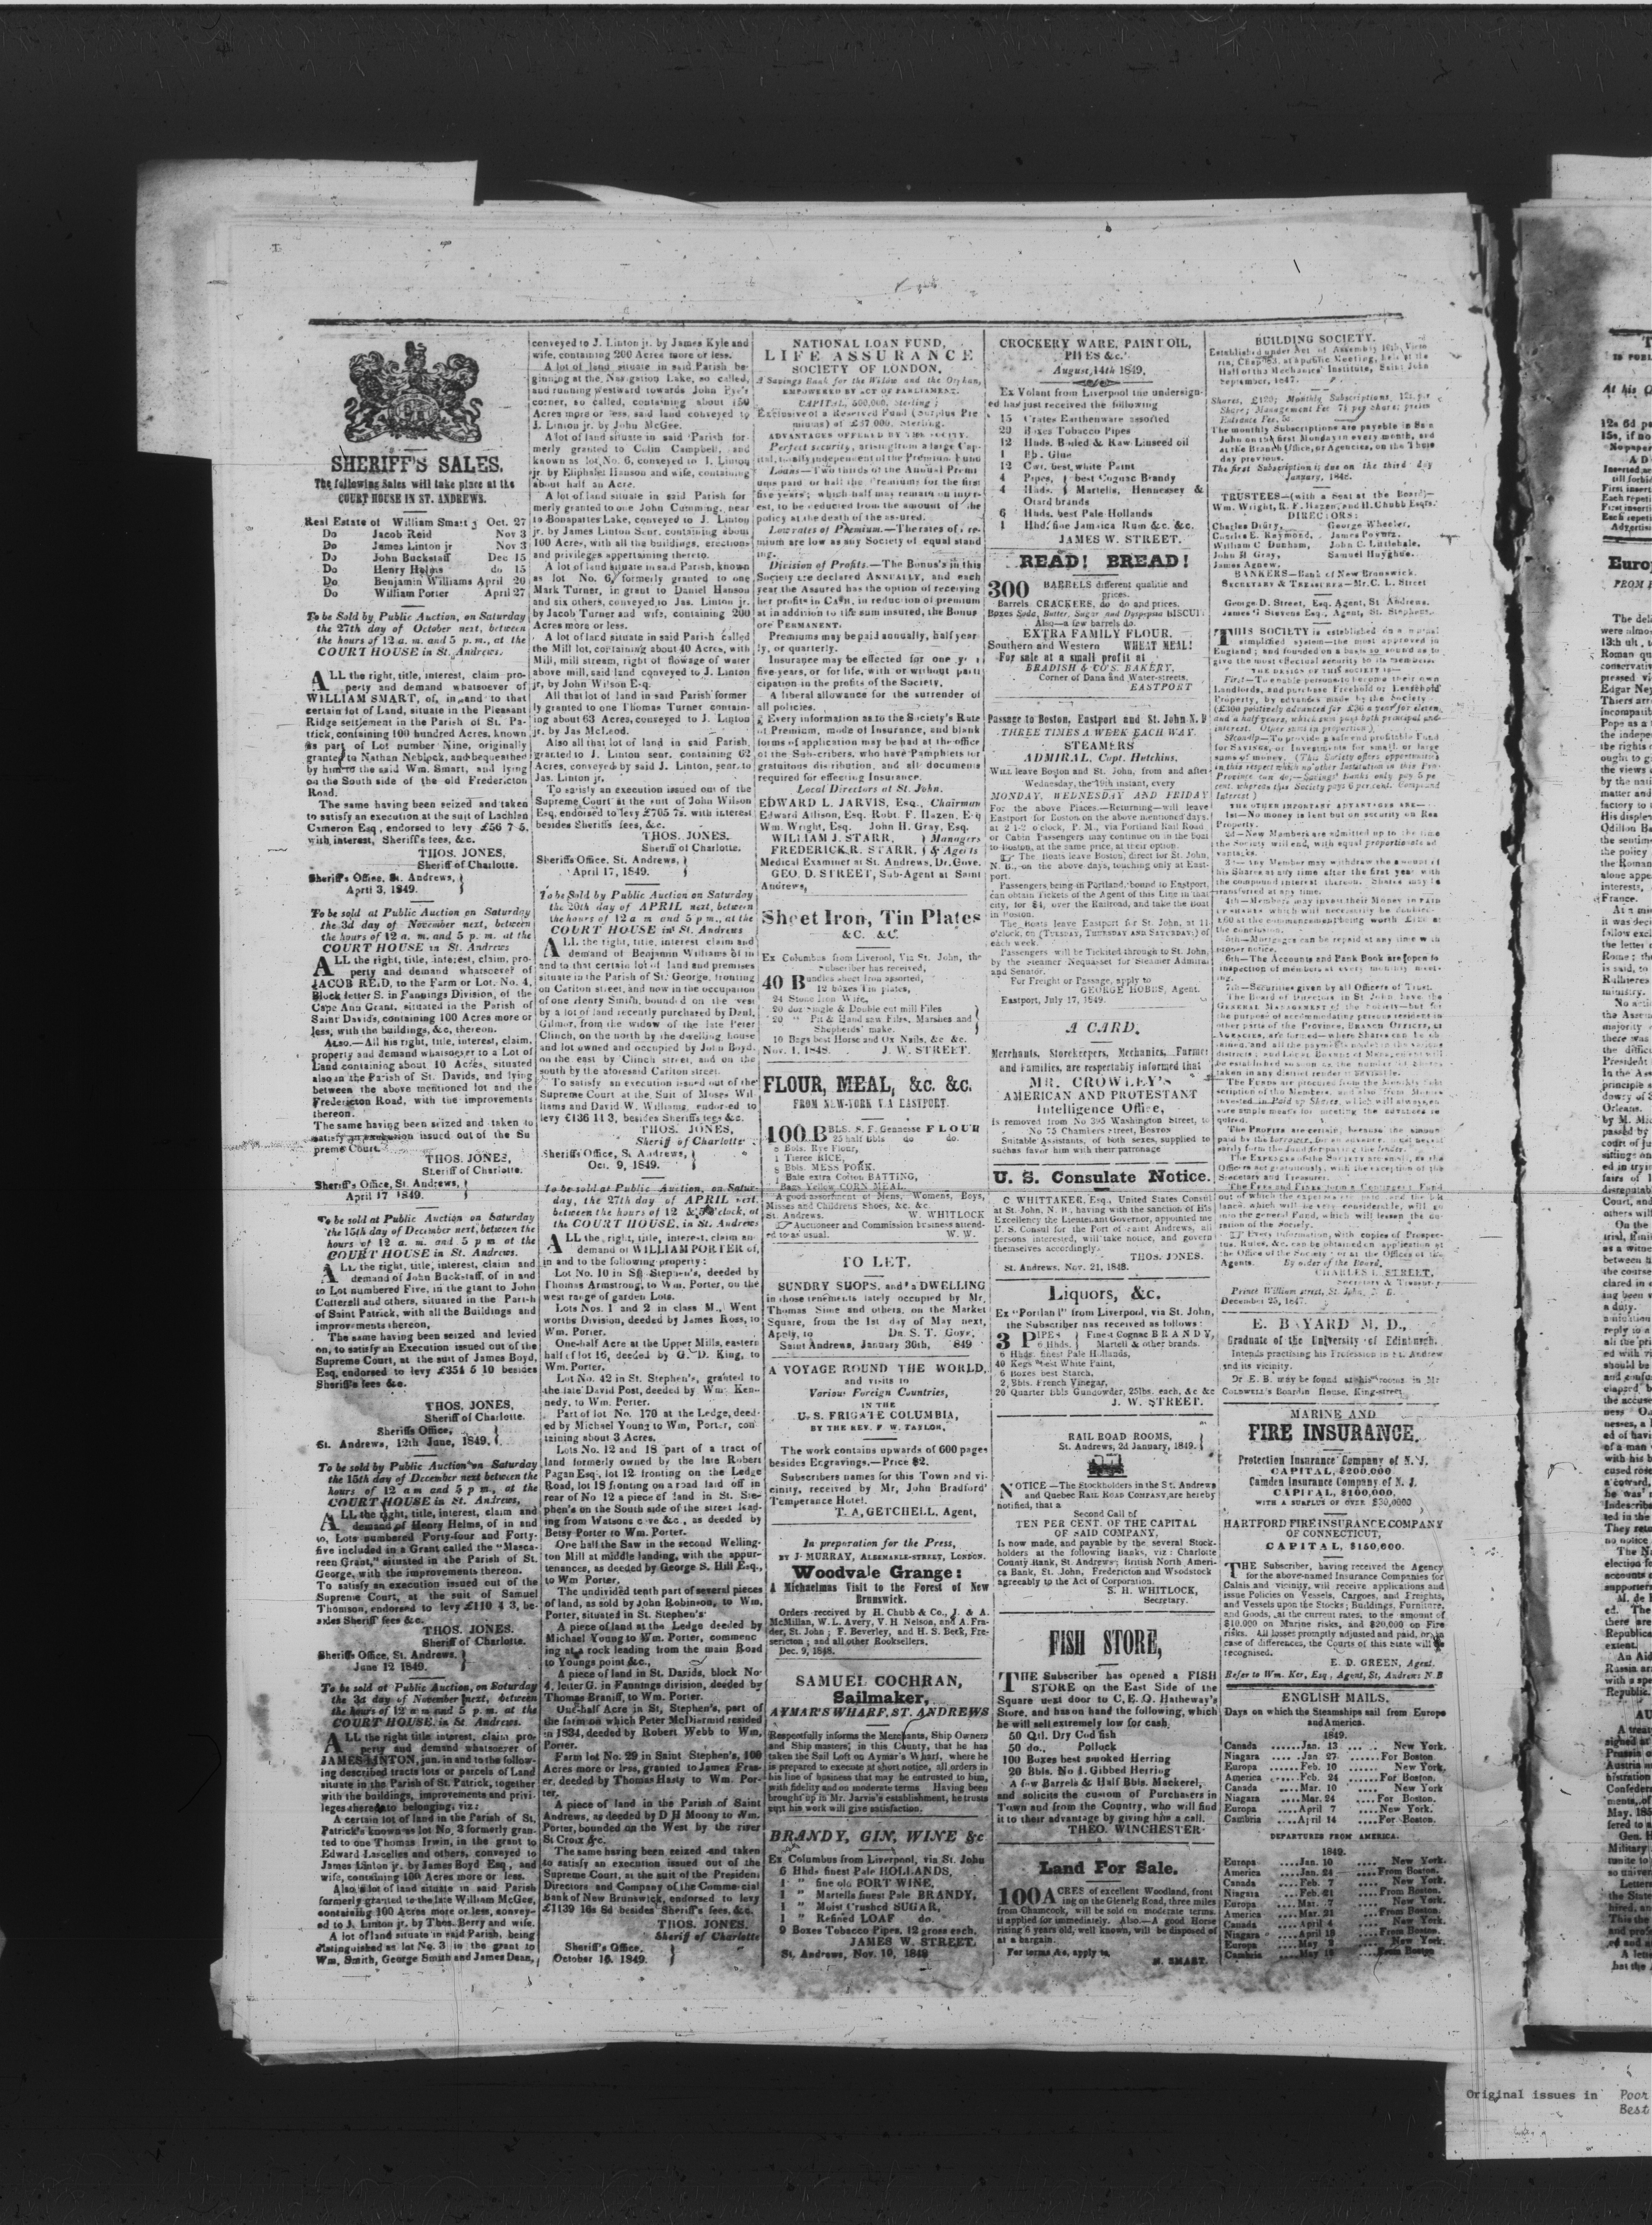 SHERIFF'S SALES.
The following Sales will take place at the
COURT HOUSE IN ST. ANDREWS.
Real Estate of William Smart, Oct. 27
Do Jacob Reid Nov 3
Do James Linton jr Nov 3
Do John Buckstaff Dec 15
Do Henry Helms do 15
Do Benjamin Williams April 20
Do William Porter April 27
To be Sold by Public Auction, on Saturday
the 27th day of October next, between
the hours of 12 a. m. and 5 p. m., at the
COURT HOUSE in St. Andrews.
ALL the right, title, interest, claim pro-
perty and demand whatsoever of
WILLIAM SMART, of, in and to that
certain lot of Land, situate in the Pleasant
Ridge settlement in the Parish of St. Pa-
trick, containing 100 hundred Acres, known
as part of Lot number Nine, originally
granted to Nathan Neblock, and bequeathed
by him to the said Wm. Smart, and lying
on the South side of the old Fredericton
Road.
The same having been seized and taken
to satisfy an execution at the suit of Lachlan
Cameron Esq, endorsed to levy £56 7 5,
with interest, Sheriff's fees, &c.
THOS. JONES,
Sheriff of Charlotte.
Sheriff's Office, St. Andrews,
April 3, 1849.
To be sold at Public Auction on Saturday
the 3d day of November next, between
the hours of 12 a. m. and 5 p. m. at the
COURT HOUSE in St. Andrews
ALL the right, title, interest, claim, pro-
perty and demand whatsoever of
JACOB REID, to the Farm or Lot. No. 4,
Block letter S. in Fannings Division, of the
Cape Ann Grant, situated in the Parish of
Saint Davids, containing 100 Acres more or
less, with the buildings, &c, thereon.
ALSO.—All his right, title, interest, claim,
property and demand whatsoever to a Lot of
Land containing about 10 Acres, situated
also in the Parish of St. Davids, and lying
between the above mentioned lot and the
Fredericton Road, with the improvements
thereon.
The same having been seized and taken to
satisfy an execution issued out of the Su
preme Court.
THOS. JONES,
Sheriff of Charlotte.
Sheriff's Office, St. Andrews,
April 17 1849.
To be sold at Public Auction on Saturday
the 15th day of December next, between the
hours of 12 a. m. and 5 p m at the
COURT HOUSE in St. Andrews.
ALL the right, title, interest, claim and
demand of John Buckstaff, of in and
to Lot numbered Five, in the grant to John
Cotterell and others, situated in the Parish
of Saint Patrick, with all the Buildings and
improvements thereon,
The same having been seized and levied
on, to satisfy an Execution issued out of the
Supreme Court, at the suit of James Boyd,
Esq. endorsed to levy £354 5 10 besides
Sheriff's fees &c.
THOS. JONES,
Sheriff of Charlotte.
Sheriffs Office,
St. Andrews, 12th June, 1849.
To be sold by Public Auction on Saturday
the 15th day of December next between the
hours of 12 a m and 5 p m., at the
COURT HOUSE in St. Andrews,
ALL the right, title, interest, claim and
demand of Henry Helms, of in and
to, Lots numbered Forty-four and Forty-
five included in a Grant called the "Masca-
reen Grant," situated in the Parish of St.
George, with the improvements thereon.
To satisfy an execution issued out of the
Supreme Court, at the suit of Samuel
Thomson, endorsed to levy £110 4 3, be-
sides Sheriff fees &c.
THOS. JONES.
Sheriff of Charlotte.
Sheriffs Office, St. Andrews.
June 12 1849.
To be sold at Public Auction, on Saturday
the 3d day of November next, between
the hours of 12 a m and 5 p m. at the
COURT HOUSE, in St. Andrews.
ALL the right title, interest, claim pro
perty and demand whatsoever of
JAMES LINTON, jun. in and to the follow-
ing described tracts lots or parcels of Land
situate in the Parish of St. Patrick, together
with the buildings, improvements and privi-
leges thereto belonging, viz:
A certain lot of land in the Parish of St.
Patrick's known as lot No. 3 formerly gran-
ted to one Thomas Irwin, in the grant to
Edward Lascelles and others, conveyed to
James Linton jr. by James Boyd Esq, and
wife, containing 100 Acres more or less.
Also a lot of land situate in said Parish
formerly granted to the late William McGee,
containing 100 Acres more or less, convey-
ed to J. Linton jr. by Thos. Berry and wife.
A lot of land situate in said Parish, being
distinguished as lot No. 3 in the grant to
Wm. Smith, George Smith and James Dean,
conveyed to J. Linton jr. by James Kyle and
wife, containing 200 Acres more or less.
A lot of land situate in said Parish be-
ginning at the Navigation Lake, so called,
and running Westward towards John Pye's
corner, so called, containing about 150
Acres more or less, said land conveyed to
J. Linton jr. by John McGee.
A lot of land situate in said Parish for-
merly granted to Colin Campbell, and
known as lot No. 6, conveyed to J. Linton
jr. by Eliphalet Hanson and wife, containing
about half an Acre.
A lot of land situate in said Parish for
merly granted to one John Cumming, near
to Bonapartes Lake, conveyed to J. Linton
jr. by James Linton Senr. containing about
100 Acres, with all the buildings, erections
and privileges appertaining thereto.
A lot of land situate in said Parish, known
as lot No. 6, formerly granted to one
Mark Turner, in grant to Daniel Hanson
and six others, conveyed to Jas. Linton jr.
by Jacob Turner and wife, containing 200
Acres more or less.
A lot of land situate in said Parish called
the Mill lot, containing about 40 Acres, with
Mill, mill stream, right of flowage of water
above mill, said land conveyed to J. Linton
jr, by John Wilson Esq.
All that lot of land in said Parish former
ly granted to one Thomas Turner contain-
ing about 63 Acres, conveyed to J. Linton
jr. by Jas McLeod.
Also all that lot of land in said Parish,
granted to J. Linton senr. containing 62
Acres, conveyed by said J. Linton, senr. to
Jas. Linton jr.
To satisfy an execution issued out of the
Supreme Court at the suit of John Wilson
Esq, endorsed to levy £705 7s. with interest
besides Sheriffs fees, &c.
THOS. JONES.
Sheriff of Charlotte.
Sheriffs Office, St. Andrews,
April 17, 1849.
To be Sold by Public Auction on Saturday
the 20th day of APRIL next, between
the hours of 12 a m and 5 p m., at the
COURT HOUSE in St. Andrews
ALL the right, title, interest claim and
demand of Benjamin Williams of in
and to that certain lot of land and premises
situate in the Parish of St. George, fronting
on Carlton street, and now in the occupation
of one Henry Smith, bounded on the west
by a lot of land recently purchased by Danl.
Gilmor, from the widow of the late Peter
Clinch, on the north by the dwelling house
and lot owned and occupied by John Boyd.
on the east by Clinch street, and on the
south by the aforesaid Carlton street.
To satisfy an execution issued out of the
Supreme Court at the Suit of Moses Wil
liams and David W. Williams, endorsed to
levy £136 11 3, besides Sheriffs fees &c.
THOS. JONES,
Sheriff of Charlotte
Sheriffs Office, S. Andrews,
Oct. 9, 1849.
To be sold at Public Auction, on Satur-
day, the 27th day of APRIL next.
between the hours of 12 & 5 o'clock, at
the COURT HOUSE, in St. Andrews
ALL the right, title, interest, claim an
demand of WILLIAM PORTER of,
in and to the following property:
Lot No. 10 in St Stephen's, deeded by
Thomas Armstrong, to Wm. Porter, on the
west range of garden Lots.
Lots Nos. 1 and 2 in class M., Went
worths Division, deeded by James Ross, to
Wm. Porter.
One-half Acre at the Upper Mills, eastern
half of lot 16, deeded by G. D. King, to
Wm. Porter.
Lot No. 42 in St. Stephen's, granted to
the late David Post, deeded by Wm. Ken-
nedy, to Wm. Porter.
Part of lot No. 170 at the Ledge, deed-
ed by Michael Young to Wm, Porter, con
taining about 3 Acres.
Lots No. 12 and 18 part of a tract of
land formerly owned by the late Robert
Pagan Esq, lot 12 fronting on the Ledge
Road, lot 18 fronting on a road laid off in
rear of No 12 a piece of land in St. Ste-
phen's on the South side of the street lead-
ing from Watsons cove &c., as deeded by
Betsy Porter to Wm. Porter.
One half the Saw in the second Welling-
ton Mill at middle landing, with the appur-
tenances, as deeded by George S. Hill Esq.,
to Wm Porter.
The undivided tenth part of several pieces
of land, as sold by John Robinson, to Wm.
Porter, situated in St. Stephen's
A piece of land at the Ledge deeded by
Michael Young to Wm. Porter, commenc
ing at a rock leading from the main Road
to Youngs point &c.,
A piece of land in St. Davids, block No
4, letter G. in Fannings division, deeded by
Thomas Braniff, to Wm. Porter.
One-half Acre in St, Stephen's, part of
the farm on which Peter McDiarmid resided
in 1834, deeded by Robert Webb to Wm.
Porter.
Farm lot No. 29 in Saint Stephen's, 100
Acres more or less, granted to James Fras-
er, deeded by Thomas Hasty to Wm. Por-
ter,
A piece of land in the Parish of Saint
Andrews, as deeded by D H Moony to Wm.
Porter, bounded on the West by the river
St Croix &c.
The same having been seized and taken
to satisfy an execution issued out of the
Supreme Court, at the suit of the President
Directors and Company of the Commercial
Bank of New Brunswick, endorsed to levy
£1139 16s 8d besides Sheriff's fees, &c.
THOS. JONES.
Sheriff of Charlotte
Sheriff's Office,
October 16. 1849.
NATIONAL LOAN FUND,
LIFE ASSURANCE
SOCIETY OF LONDON.
A Savings Bank for the Widow and the Orphan,
EMPOWERED BY ACT OF PARLIAMENT.
CAPITAL, 500,000, Sterling;
Exclusive of a Reserved Fund (Surplus Pre
miums) of £37 000. Sterling.
ADVANTAGES OFFERED BY THE SOCIETY.
Perfect security, arising from a large Cap-
ital, totally independent of the Premium Fund
Loans—Two thirds of the Annual Premi
ums paid or half the Premiums for the first
five years; which half may remain on inter-
est, to be deducted from the amount of the
policy at the death of the assured.
Low rates of Premium.—The rates of pre
mium are low as any Society of equal stand
ing.
Division of Profits.—The Bonus's in this
Society are declared ANNUALLY, and each
year the Assured has the option of receiving
her profits in CASH, in reduction of premium
at in addition to the sum insured, the Bonus
ore PERMANENT.
Premiums may be paid annually, half year
ly, or quarterly.
Insurance may be effected for one y
five years, or for life, with or without parti
cipation in the profits of the Society.
A liberal allowance for the surrender of
all policies.
Every information as to the Society's Rate
of Premium, mode of Insurance, and blank
forms of application may be had at the office
of the Subscribers. who have Pamphlets for
gratuitous distribution, and all documents
required for effecting Insurance.
Local Directors at St. John.
EDWARD L. JARVIS, Esq., Chairman
Edward Allison, Esq. Robt. F. Hazen, Esq
Wm. Wright, Esq. John H. Gray, Esq.
WILLIAM J. STARR, Managers
FREDERICK R. STARR, & Agents
Medical Examiner at St. Andrews, Dr. Gove.
GEO. D. STREET, Sub-Agent at Saint
Andrews,
Sheet Iron, Tin Plates
&C. &C.
Ex Columbus from Liverool, Via St. John, the
Subscriber has received,
40 Bundles sheet Iron assorted,
12 boxes Tin plates,
24 Stone Iron Wire,
20 doz single & Double cut mill Files
20 " Pit & Hand saw Files, Marshes and
Shepherds' make.
10 Bags best Horse and Ox Nails, &c &c.
Nov. 1, 1848. J. W. STREET.
FLOUR, MEAL, &c. &c.
FROM NEW-YORK VIA EASTPORT.
100 BBLS. S. F. Gennesse FLOUR
25 half Bbls do do.
Bbls. Rye Flour,
1 Tierce RICE,
Bbls. MESS PORK.
Bale extra Cotton BATTING,
Bags Yellow CORN MEAL.
A good assortment of Mens, Womens, Boys,
Misses and Childrens Shoes, &c. &c.
St. Andrews. W. WHITLOCK
Auctioneer and Commission business attend-
ed to as usual. W. W.
TO LET.
SUNDRY SHOPS, and a DWELLING
in those tenements lately occupied by Mr.
Thomas Sime and others, on the Market
Square, from the 1st day of May next,
Apply, to DR. S. T. Gove,
Saint Andrews, January 30th, 849
A VOYAGE ROUND THE WORLD.
and visits to
Various Foreign Countries,
IN THE
U. S. FRIGATE COLUMBIA,
BY THE REV. F W. TAYLOR,
The work contains upwards of 600 pages
besides Engravings.—Price $2.
Subscribers names for this Town and vi-
cinity, received by Mr, John Bradford'
Temperance Hotel.
T. A, GETCHELL, Agent,
In preparation for the Press,
BY J. MURRAY, ALBEMARLE-STREET, LONDON.
Woodvale Grange:
A Michaelmas Visit to the Forest of New
Brunswick.
Orders received by H. Chubb & Co., J. & A.
McMillan, W. L. Avery, V. H Nelson, and A. Fra-
der, St. John; F. Beverley, and H. S. Beck, Fre-
sericton; and all other Booksellers.
Dec. 9, 1848.
SAMUEL COCHRAN,
Sailmaker,
AYMAR'S WHARF, ST. ANDREWS
Respectfully informs the Merchants, Ship Owners
and Ship masters, in this County, that he has
taken the Sail Loft on Aymar's Wharf, where he
is prepared to execute at short notice, all orders in
his line of business that may be entrusted to him,
with fidelity and on moderate terms. Having been
brought up in Mr. Jarvis's establishment, he trusts
that his work will give satisfaction.
BRANDY, GIN, WINE &c
Ex Columbus from Liverpool, via St. John
6 Hhds finest Pale HOLLANDS,
1 " fine old PORT WINE,
1 " Martells finest Pale BRANDY,
1 " Moist Crushed SUGAR,
1 " Refined LOAF do.
9 Boxes Tobacco Pipes, 12 gross each,
JAMES W. STREET.
St. Andrews, Nov. 10, 1848
CROCKERY WARE, PAINT OIL,
PIPES &c.
August, 14th 1849.
Ex Volant from Liverpool the undersign-
ed has just received the following
15 Crates Earthenware assorted
20 Boxes Tobacco Pipes
12 Hhds. Boiled & Raw Linseed oil
1 Bb. Glue
12 Cwt. best, white Paint
4 Pipes, best Cognac Brandy
4 Hhds. Martells, Hennessey &
Otard brands
6 Hhds. best Pale Hollands
1 Hhd. fine Jamaica Rum &c. &c.
JAMES W. STREET.
READ! BREAD!
300 BARRELS different qualitie and
prices.
Barrels CRACKERS, do do and prices.
Boxes Soda, Butter, Sugar and Dyspepsia BISCUIT
Also—a few barrels do.
EXTRA FAMILY FLOUR.
Southern and Western WHEAT MEAL!
For sale at a small profit at
BRADISH & CO'S. BAKERY,
Corner of Dana and Water-streets.
EASTPORT
Passage to Boston, Eastport and St. John N. B
THREE TIMES A WEEK EACH WAY.
STEAMERS
ADMIRAL, Capt. Hutchins,
WILL leave Boston and St. John, from and after
Wednesday, the 19th instant, every
MONDAY, WEDNESDAY AND FRIDAY
For the above Places.—Returning—will leave
Eastport for Boston on the above mentioned days.
at 2 1-2 o'clock, P. M., via Portland Rail Road
or Cabin Passengers may continue on in the boat
to Boston, at the same price, at their option.
The Boats leave Boston, direct for St. John,
N. B., on the above days, touching only at East-
port.
Passengers being in Portland, bound to Eastport,
can obtain Tickets of the Agent of this Line in that
city, for $4, over the Railroad, and take the Boat
in Boston.
The Boats leave Eastport for St. John, at 11
o'clock, on (TUESDAY, THURSDAY AND SATURDAY) of
each week.
Passengers will be Tickited through to St. John,
by the Steamer Nequasset for Steamer Admiral
and Senator.
For Freight or Passage, apply to
GEORGE HOBBS, Agent.
Eastport, July 17, 1849.
A CARD.
Merchants. Storekeepers, Mechanics, Farmer
and Families, are respectably informed that
MR. CROWLEY'S
AMERICAN AND PROTESTANT
Intelligence Office,
Is removed from No 395 Washington Street, to
No 75 Chambers street, BOSTON
Suitable Assistants, of both sexes, supplied to
suchas favor him with their patronage
U. S. Consulate Notice.
C. WHITTAKER, Esq., United States Consul
at St. John, N. B., having with the sanction of His
Excellency the Lieutenant Governor, appointed me
U. S. Consul for the Port of Saint Andrews, all
persons interested, will take notice, and govern
themselves accordingly.
THOS. JONES.
St. Andrews, Nov. 21, 1848.
Liquors, &c.
Ex "Portland" from Liverpool, via St. John,
the Subscriber has received as follows:
3 PIPES Finest Cognac BRANDY,
6 Hhds. Martell & other brands.
6 Hhds. finest Pale Hollands,
40 Kegs best White Paint,
6 Boxes best Starch,
2 Bbls. French Vinegar,
20 Quarter Bbls Gunpowder, 25lbs. each, &c &c
J. W. STREET.
RAIL ROAD ROOMS,
St. Andrews, 2d January, 1849.
NOTICE—The Stockholders in the St. Andrews
and Quebec RAIL ROAD COMPANY, are hereby
notified, that a
Second Call of
TEN PER CENT. OF THE CAPITAL
OF SAID COMPANY,
Is now made, and payable by the several Stock-
holders at the following Banks, viz: Charlotte
County Bank, St. Andrews; British North Ameri-
ca Bank, St. John, Fredericton and Woodstock
agreeably to the Act of Corporation.
S. H. WHITLOCK,
Secretary.
FISH STORE,
THE Subscriber has opened a FISH
STORE on the East Side of the
Square next door to C. E. O. Hatheway's
Store, and has on hand the following, which
he will sell extremely low for cash,
50 Qtl. Dry Cod fish
50 do., Pollock
100 Boxes best smoked Herring
20 Bbls. No 1. Gibbed Herring
A few Barrels & Half Bbls. Mackerel,
and solicits the custom of Purchasers in
Town and from the Country, who will find
it to their advantage by giving him a call.
THEO. WINCHESTER
Land For Sale.
100 ACRES of excellent Woodland, front
ing on the Glenelg Road, three miles
from Chamcook, will be sold on moderate terms.
if applied for immediately. Also.—A good Horse
rising 6 years old, well known, will be disposed of
at a bargain.
For terms &c, apply to,
N. SMART.
BUILDING SOCIETY.
Established under Act of Assembly 10th Victo
ria, Chap. 83, at a public Meeting, held at the
Hall of the Mechanics' Institute, Saint John
September, 1847.
Shares, £120; Monthly Subscriptions, 12s. per
Share; Management Fee 7½ per Share;
Entrance Fee, 5s
The monthly Subscriptions are payable in Sain
John on the first Monday in every month, and
at the Branch Office, or Agencies, on the Thurs
day previous.
The first Subscription is due on the third day
January, 1848.
TRUSTEES—(with a Seat at the Board)—
Wm. Wright, R. F. Hazen, and H. Chubb Esqrs.
DIRECTORS:
Charles Drury, George Wheeler,
Charles E. Raymond, James Povner,
William C Dunham, John C. Littlehale,
John H Gray, Samuel Huyghue.
James Agnew,
BANKERS—Bank of New Brunswick.
SECRETARY & TREASURER—Mr. C. L. Street
George D. Street, Esq. Agent, St Andrews.
James G Stevens Esq., Agent, St. Stephens.
THIS SOCIETY is established on a mutual
simplified system—the most approved in
England; and founded on a basis so sound as to
give the most effectual security to its members.
THE DESIGN OF THIS SOCIETY IS—
First—To enable persons to become their own
Landlords, and purchase Freehold or Leasehold
Property, by advances made by the Society
(£100 positively advanced for £20 a year for eleven
and a half years, which sum pays both principal and
interest. Other sums in proportion).
Secondly—To provide a safe and profitable Fund
for SAVINGS, or Investments for small or large
sums of money. (This Society offers opportunities
in this respect which no other Institution in this Pro-
Province can do;—Savings' Banks only pay 5 pe
cent. whereas this Society pays 6 per cent. Compound
Interest)
THE OTHER IMPORTANT ADVANTAGES ARE—
1st—No money is lent but on security on Rea
Property.
2d—New Members are admitted up to the time
the Society will end, with equal proportionate ad
vantages.
3d—any Member may withdraw the amount of
his Shares at any time after the first year with
the compound interest thereon. Shares may be
transferred at any time.
4th—Members may invest their Money in PAID
UP SHARES which will necessarily be doubled—
£60 at the commencement being worth £120 at
the conclusion.
5th—Mortgages can be repaid at any time with
proper notice.
6th—The Accounts and Pank Book are open to
inspection of members at every monthly meet-
ing.
7th—Securities given by all Officers of Trust.
The Board of Directors in St John have the
GENERAL MANAGEMENT of the Society—but for
the purpose of accommodating persons resident in
other parts of the Province, BRANCH OFFICES, or
AGENCIES, are formed—where Shares can be ob
tained, and all the payments made in the various
districts; and Local BOARDS of Management will
be established so soon as the number of Shares
taken in any district render it advisable.
The FUNDS are procured from the Monthly Sub
scription of the Members, and also from Monies
invested in Paid up Shares, which will always en
sure ample means for meeting the advances re
quired.
The PROFITS are certain, because the amount
paid by the borrower, for an advance must neces
sarily form the fund for paying the lender.
The EXPENSES of the Society are small, as the
Officers act gratuitously, with the exception of the
Secretary and Treasurer.
The FEES and FINES form a Contingent Fund
out of which the expenses are paid and the bal
lance, which will be very considerable, will go
into the general Fund, which will lessen the du-
ration of the Society.
Every information, with copies of Prospec-
tus, Rules, &c. can be obtained on application at
the Office of the Society or at the Offices of the
Agents. By order of the Board,
CHARLES L. STREET,
Secretary & Treasurer
Prince William street, St. John, N. B.
December 25, 1847.
E. BAYARD M. D.,
Graduate of the University of Edinburgh.
Intends practising his Profession in St. Andrew
and its vicinity.
Dr E. B. may be found at his rooms in Mr
COLDWELL'S Boardin House, King-street,
MARINE AND
FIRE INSURANCE.
Protection Insurance Company of N. J.
CAPITAL, $200,000
Camden Insurance Company of N. J.
CAPITAL, $100,000,
WITH A SURPLUS OF OVER $30,0000
HARTFORD FIRE INSURANCE COMPANY
OF CONNECTICUT,
CAPITAL, $150,000.
THE Subscriber, having received the Agency
for the above-named Insurance Companies for
Calais and vicinity, will receive applications and
issue Policies on Vessels, Cargoes, and Freights,
and Vessels upon the Stocks; Buildings, Furniture,
and Goods, at the current rates, to the amount of
$10,000 on Marine risks, and $20,000 on Fire
risks. All losses promptly adjusted and paid, or in
case of differences, the Courts of this State will be
recognised.
E. D. GREEN, Agent.
Refer to Wm. Ker, Esq, Agent, St, Andrews N. B
ENGLISH MAILS.
Days on which the Steamships sail from Europe
and America.
1849.
Canada Jan. 13 New York.
Niagara Jan 27 For Boston.
Europa Feb. 10 New York.
America Feb. 24 For Boston.
Canada Mar. 10 New York
Niagara Mar. 24 For Boston.
Europa April 7 New York.
Cambria April 14 For Boston.
DEPARTURES FROM AMERICA.
1849.
Europa Jan. 10 New York.
America Jan. 24 From Boston.
Canada Feb. 7 New York.
Niagara Feb. 21 From Boston.
Europa Mar. 7 New York.
America Mar. 21 From Boston.
Canada April 4 New York.
Niagara April 18 From Boston.
Europa May 2 New York.
Cambria May 16 From Boston
Original issues in Poor
Best